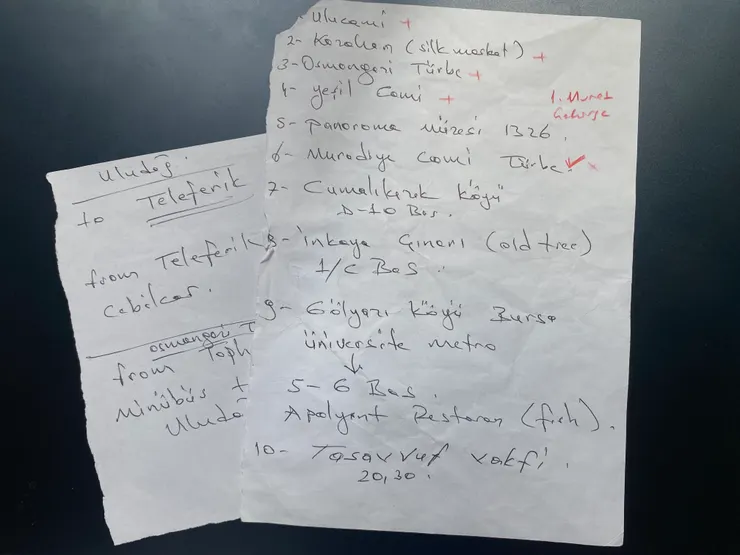 Ulucami +
2- Kozahan (silk market) +
3- Osmangazi Türbe +
4- yeşil Cami +
1. Murat
5- Panorama Müzesi 1326.
6- Muradiye Cami Türbe ✓
7- Cumalıkızık Köyü
D-10 Bus.
8- İnkaya Çınarı (old tree)
1/C Bas
9- Gölyazı Köyü Bursa
üniversite metro
↓
5-6 Bas.
Apolyont Restoran (fish).
10- Tasavvuf vakfi.
20,30.
Uludağ.
to Teleferik
from Teleferik
osmangazi T
from Toph
Minübüs +
Uludağ